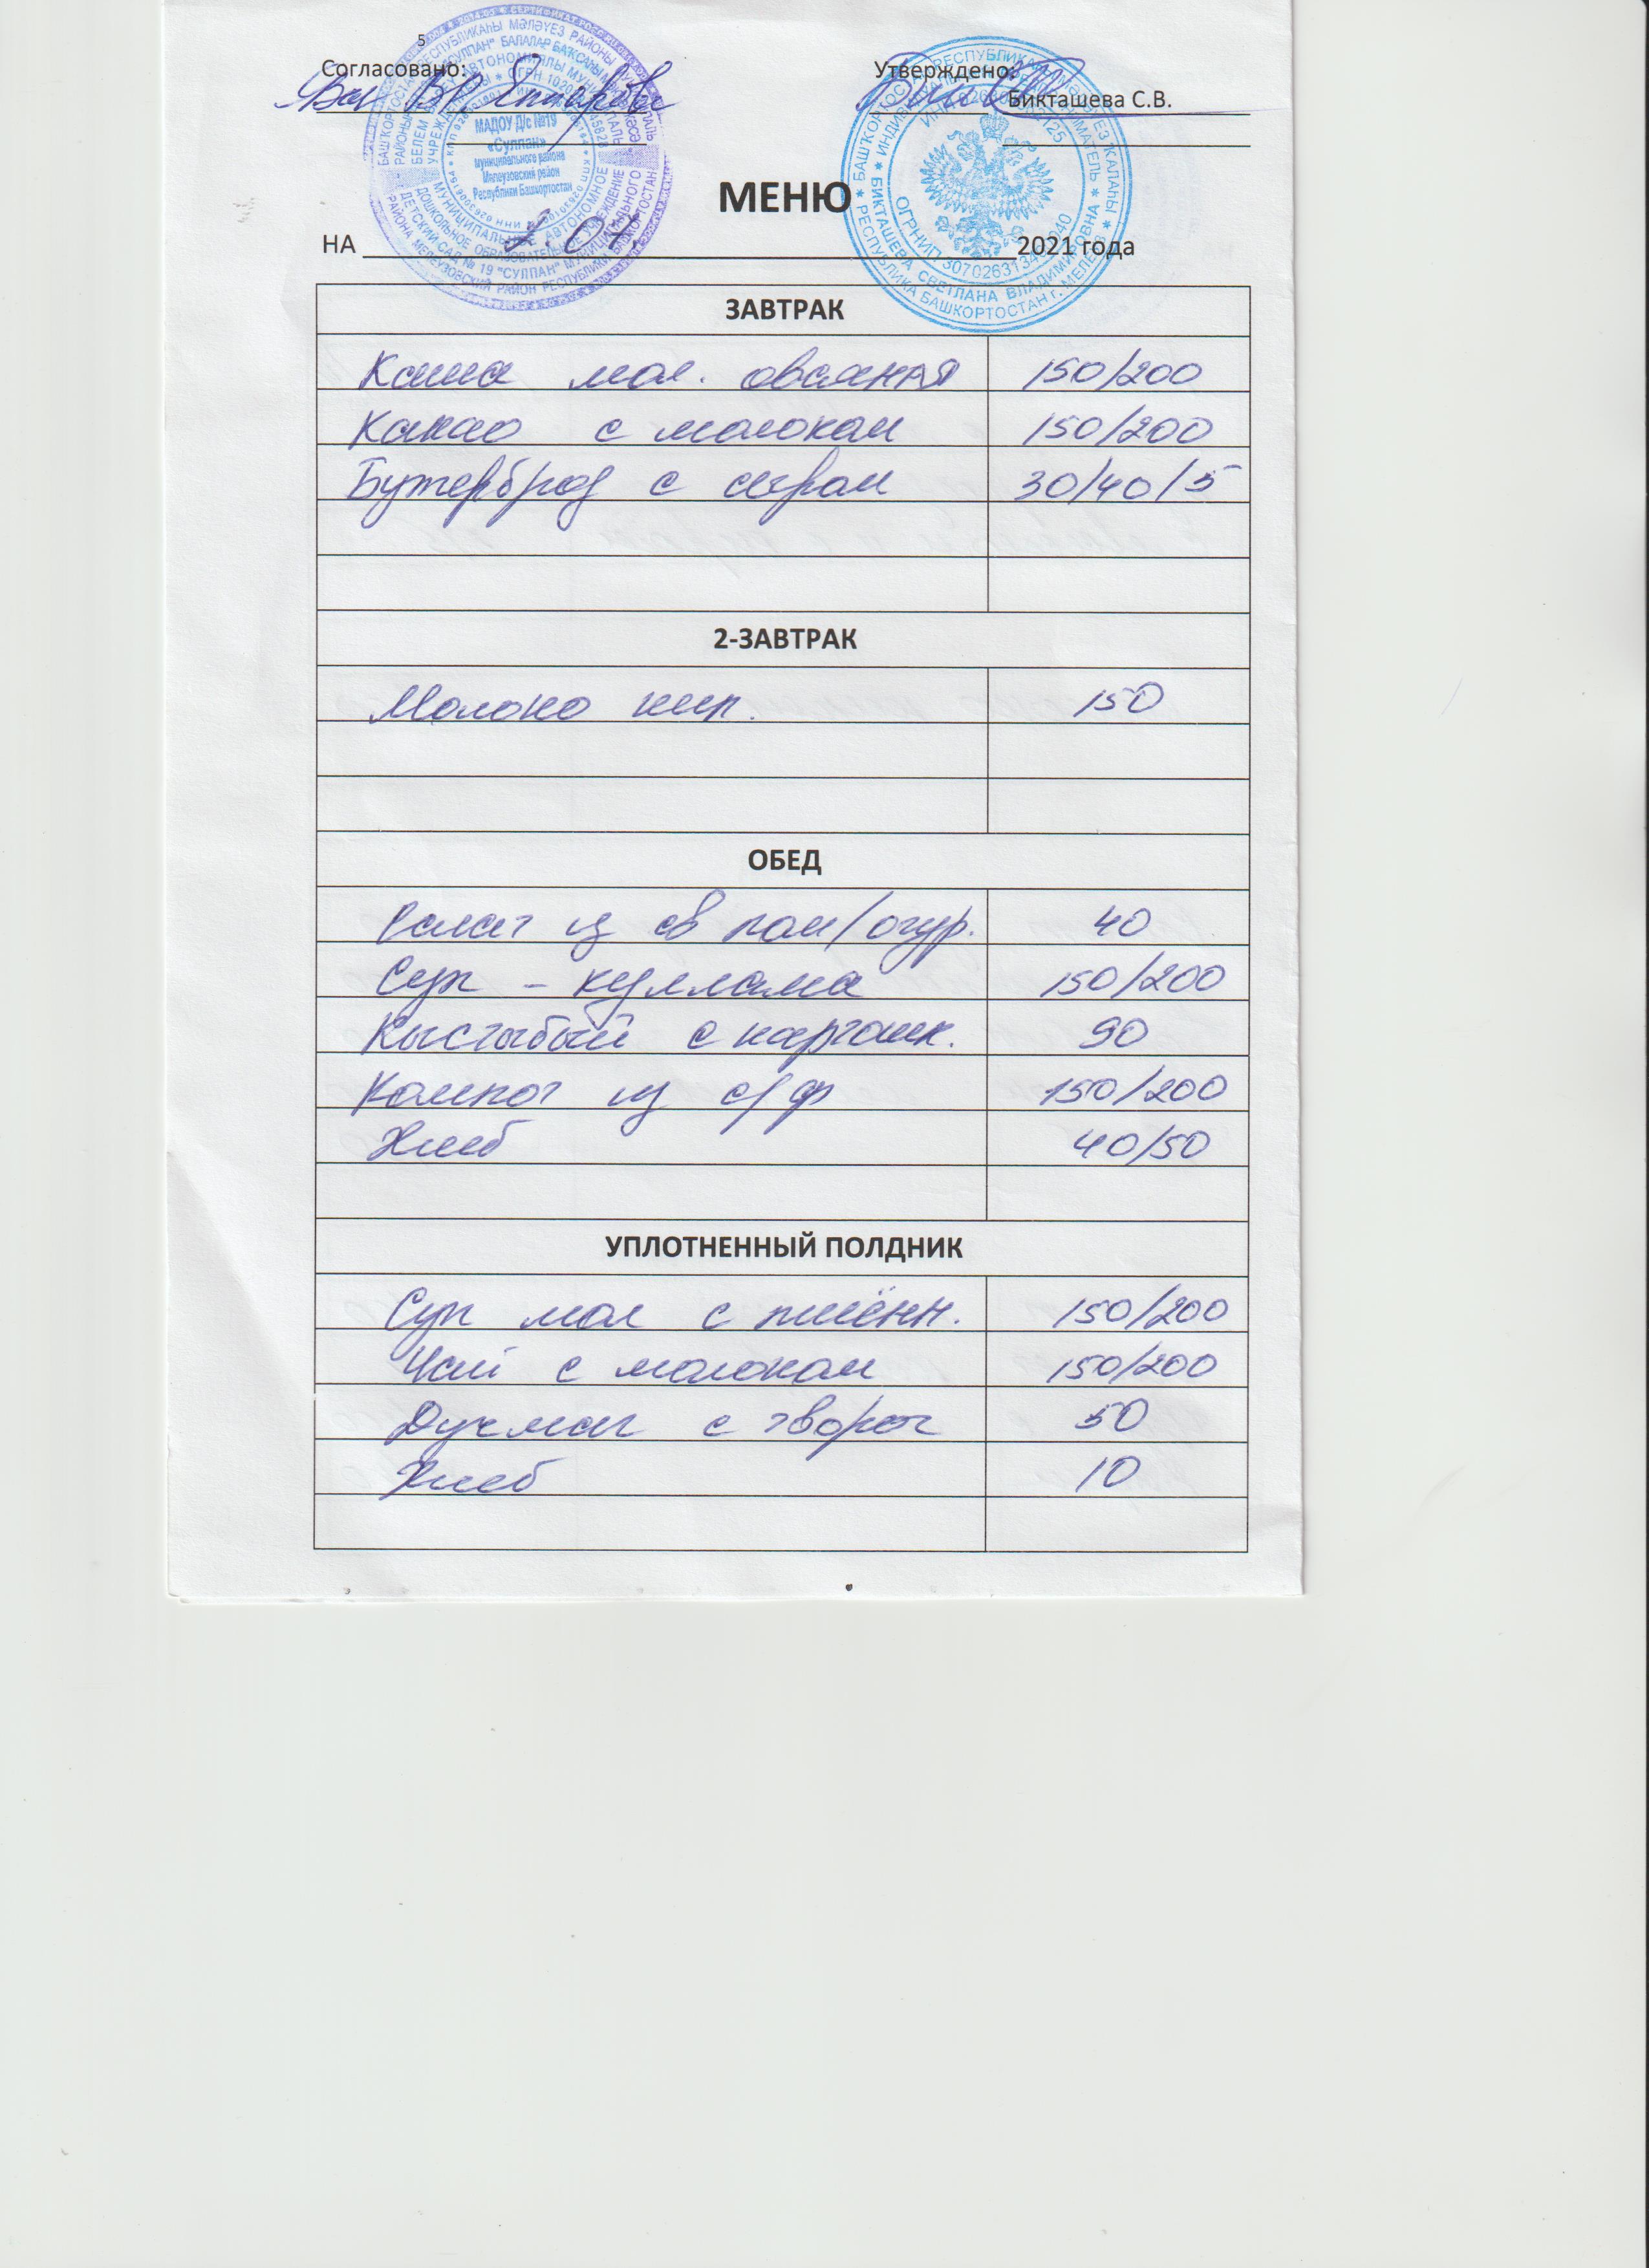 5
Согласовано:
Утверждено:
Бикташева С.В.
МАДОУ Д/с №19
«Сулпан»
муниципального района
Мелеузовский район
Республики Башкортостан
МЕНЮ
НА 2021 года
ЗАВТРАК
Каша мол. овсяная 150/200
Какао с молоком 150/200
Бутерброд с сыром 30/40/5
2-ЗАВТРАК
Молоко кип. 150
ОБЕД
Салат из св пом/огур. 40
Суп - куллама 150/200
Кыстыбый с картошк. 90
Компот из с/ф 150/200
Хлеб 40/50
УПЛОТНЕННЫЙ ПОЛДНИК
Суп мол с пшённ. 150/200
Чай с молоком 150/200
Дучмаг с творог 50
Хлеб 10